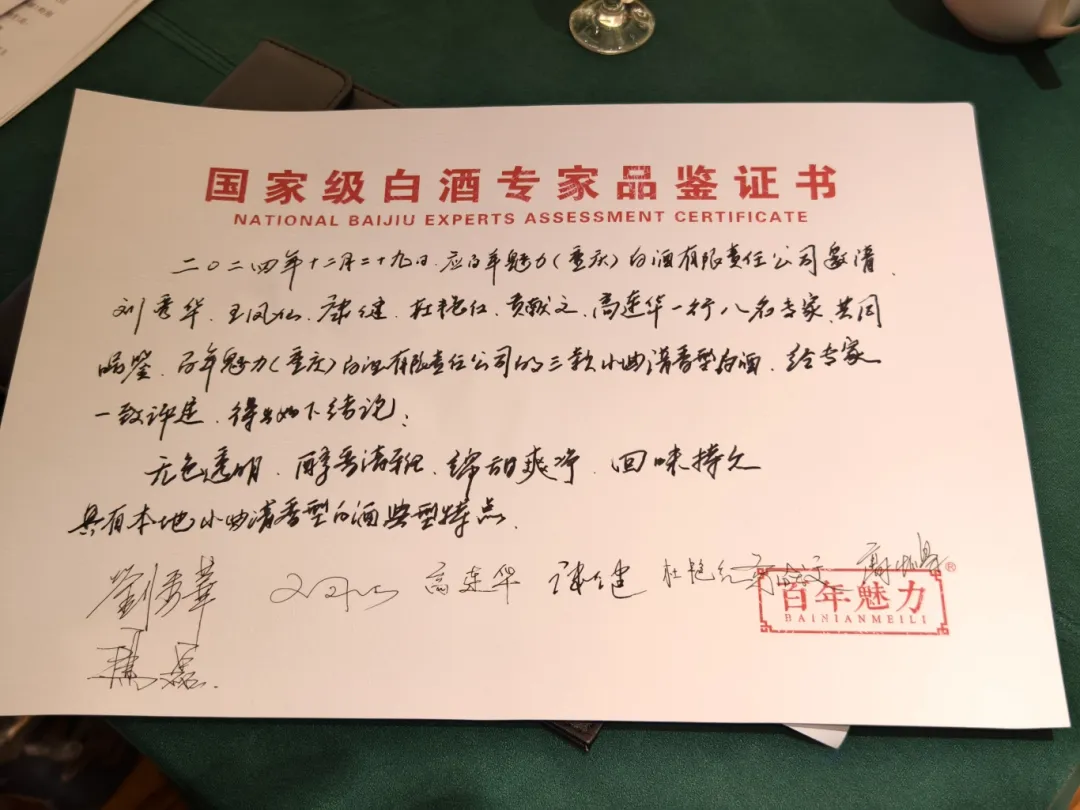 国家级白酒专家品鉴证书
NATIONAL BAIJIU EXPERTS ASSESSMENT CERTIFICATE
二〇二四年十二月二十九日.应百年魅力(重庆)白酒有限责任公司邀请.
刘秀华.王凤仙.康健.杜艳红.贡献文.高连华一行八名专家.共同
品鉴.百年魅力(重庆)白酒有限责任公司的三款小曲清香型白酒.给专家
一致评定.得出如下结论:
无色透明.醇香清雅.绵甜爽净.回味持久
具有本地小曲清香型白酒典型特点.
劉秀華 高连华 康健 杜艳红
百年魅力®
BAINIANMEILI